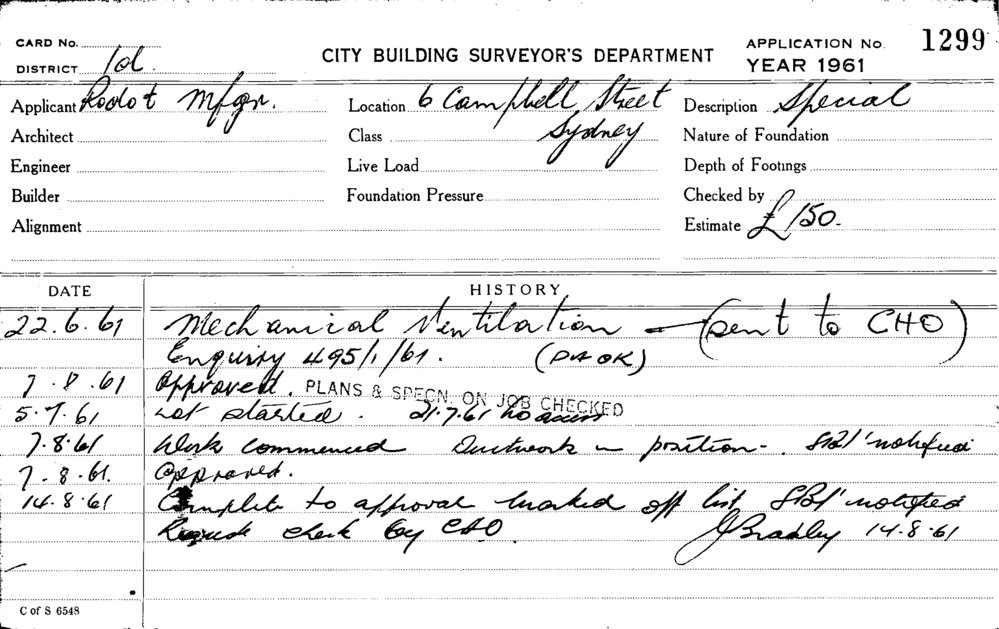 CARD No.
DISTRICT 10d.
CITY BUILDING SURVEYOR'S DEPARTMENT
APPLICATION No. 1299
YEAR 1961
Applicant Rodot Mfgr.
Location 6 Campbell Street
Sydney
Description Special
Architect
Class
Nature of Foundation
Engineer
Live Load
Depth of Footings
Builder
Foundation Pressure
Checked by
Alignment
Estimate £150-
DATE HISTORY
22.6.61 Mechanical Ventilation — (sent to CHO)
Enquiry 495/1/61. (PA OK)
7.8.61 Approved. PLANS & SPECN. ON JOB CHECKED
5.7.61 not started. 21.7.61 no access
7.8.61 Work commenced Ductwork in position. SBI notified
7.8.61. Approved.
14.8.61 Complete to approval marked off list SBI notified
Request check by CHO J Bradley 14.8.61
C of S 6548